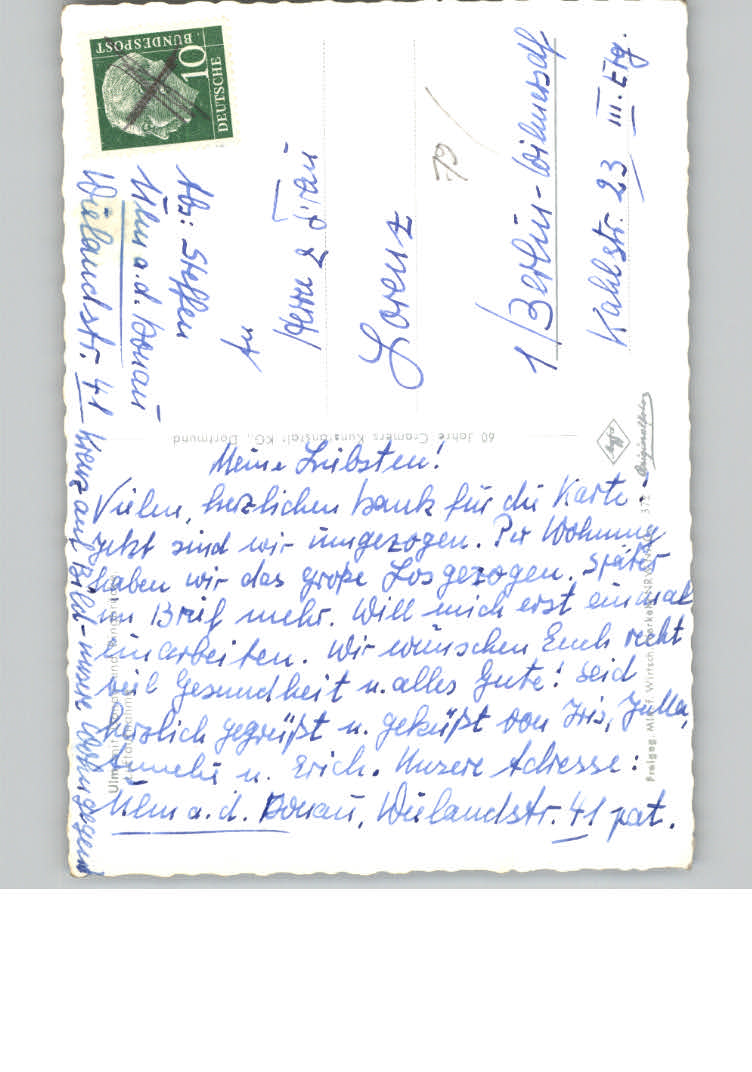 Meine Liebsten!
Vielen, herzlichen Dank für die Karte.
Jetzt sind wir umgezogen. Per Wohnung
haben wir das große Los gezogen. Später
im Brief mehr. Will mich erst einmal
einarbeiten. Wir wünschen Euch recht
viel Gesundheit u. alles Gute! Seid
herzlich gegrüßt u. geküßt von Iris, Jutta,
u. Erich. Unsere Adresse:
Ulm a.d. Donau, Wielandstr. 41 pat.
Kreuz auf Bild - unsere Wohngegend
Abs: Steffen
Ulm a.d. Donau
Wielandstr. 41
An
Herrn & Frau
Lorenz
1/Berlin-Wilmersdf
Kahlstr. 23 III. Etg.
79
DEUTSCHE
BUNDESPOST
10
60 Jahre Cramers Kunstanstalt KG., Dortmund
Agfa
Originalfoto